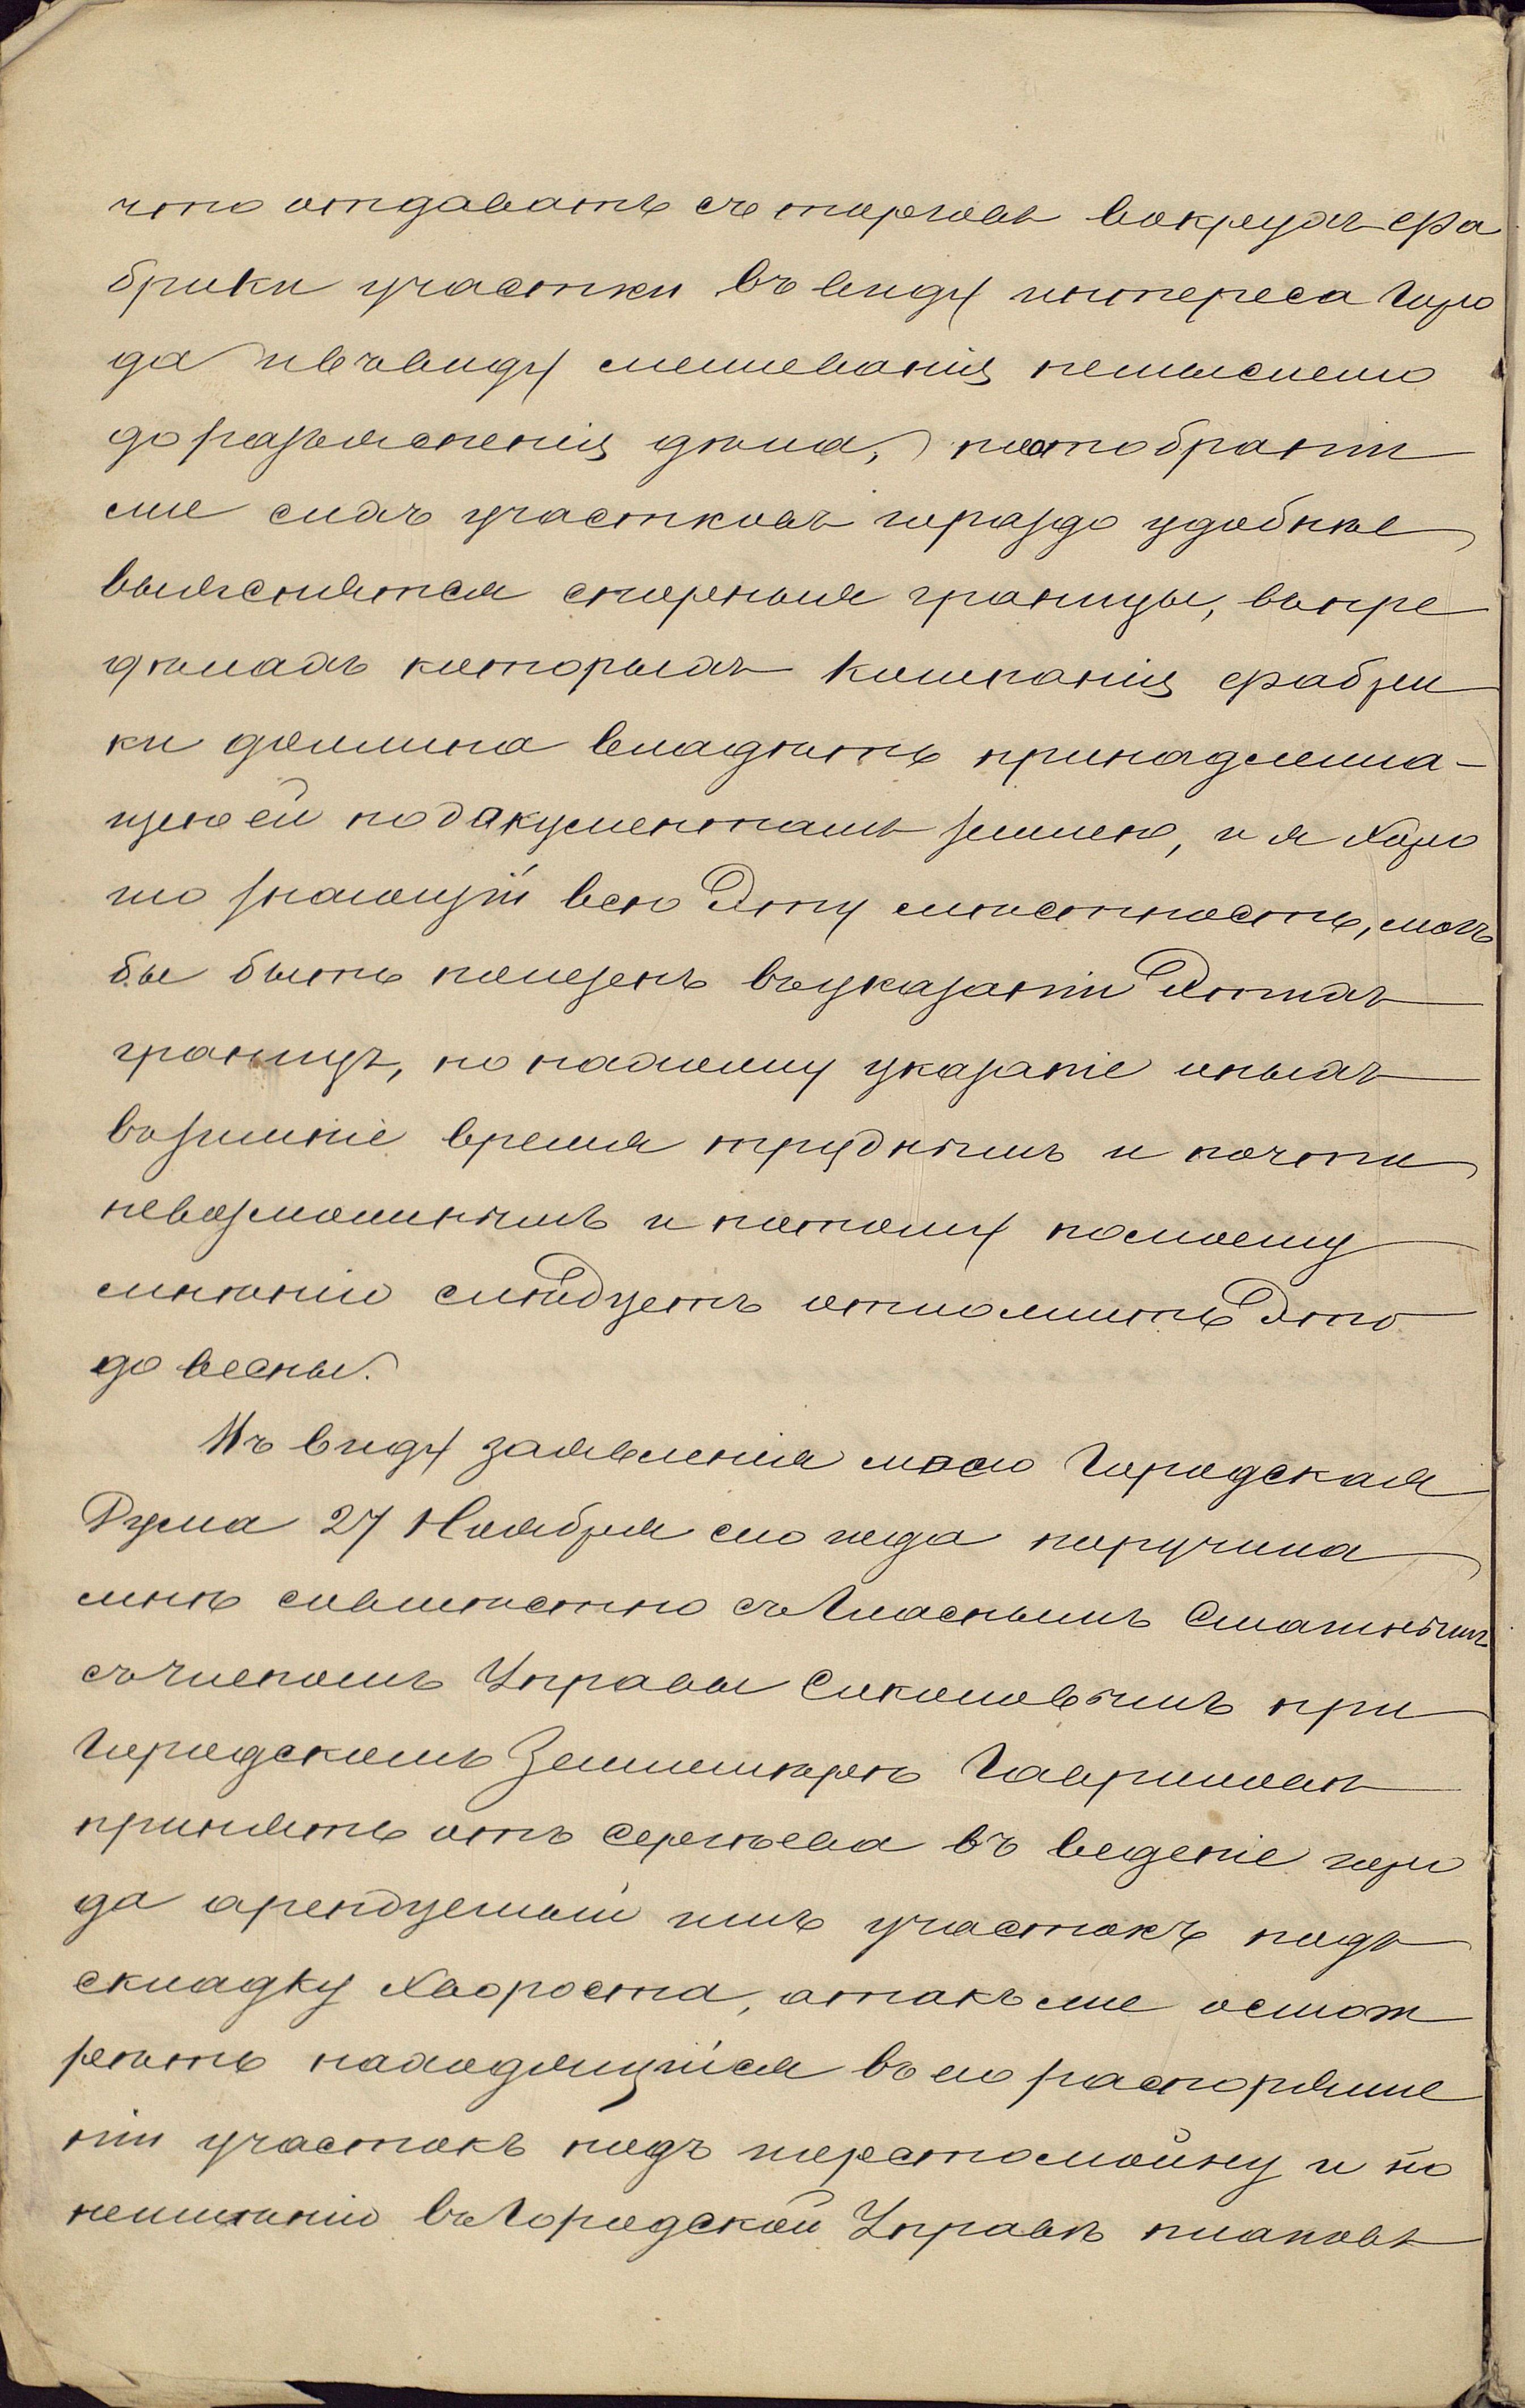 что отдавать съ торговъ вокругъ фа
брики участки въ виду интереса горо
да и въ виду межеванія немыслемо
до разъясненія дѣла, по отобраніи
же сихъ участковъ гораздо удобнѣе
выяснятся спорныя границы, въ пре
дѣлахъ которыхъ Компанія фабри
ки должна владѣть принадлежа-
щею ей по дакументамъ землею, и я хоро
шо знающій всю эту мѣстность, могъ
бы быть полезенъ въ указаніи этихъ
границъ, но нахожу указаніе иныхъ
въ зимніе время труднымъ и почти
невозможнымъ и потому по моему
мнѣнію слѣдуетъ отложить это
до весны.
Въ виду заявленія моего Городская
Дума 27 Ноября сего года поручила
мнѣ совмѣстно съ Гласнымъ Смагинымъ
съ членомъ Управы Соколовымъ при
Городскомъ Землемѣрѣ Гавриловѣ
принять отъ Сергѣева въ веденіе горо
да арендуемый имъ участокъ подъ
складку хвороста, а такъ же осмот
рѣть находящійся въ его распоряже
ніи участокъ подъ шерстомойну и по
неимѣнію въ Городской Управѣ плановъ